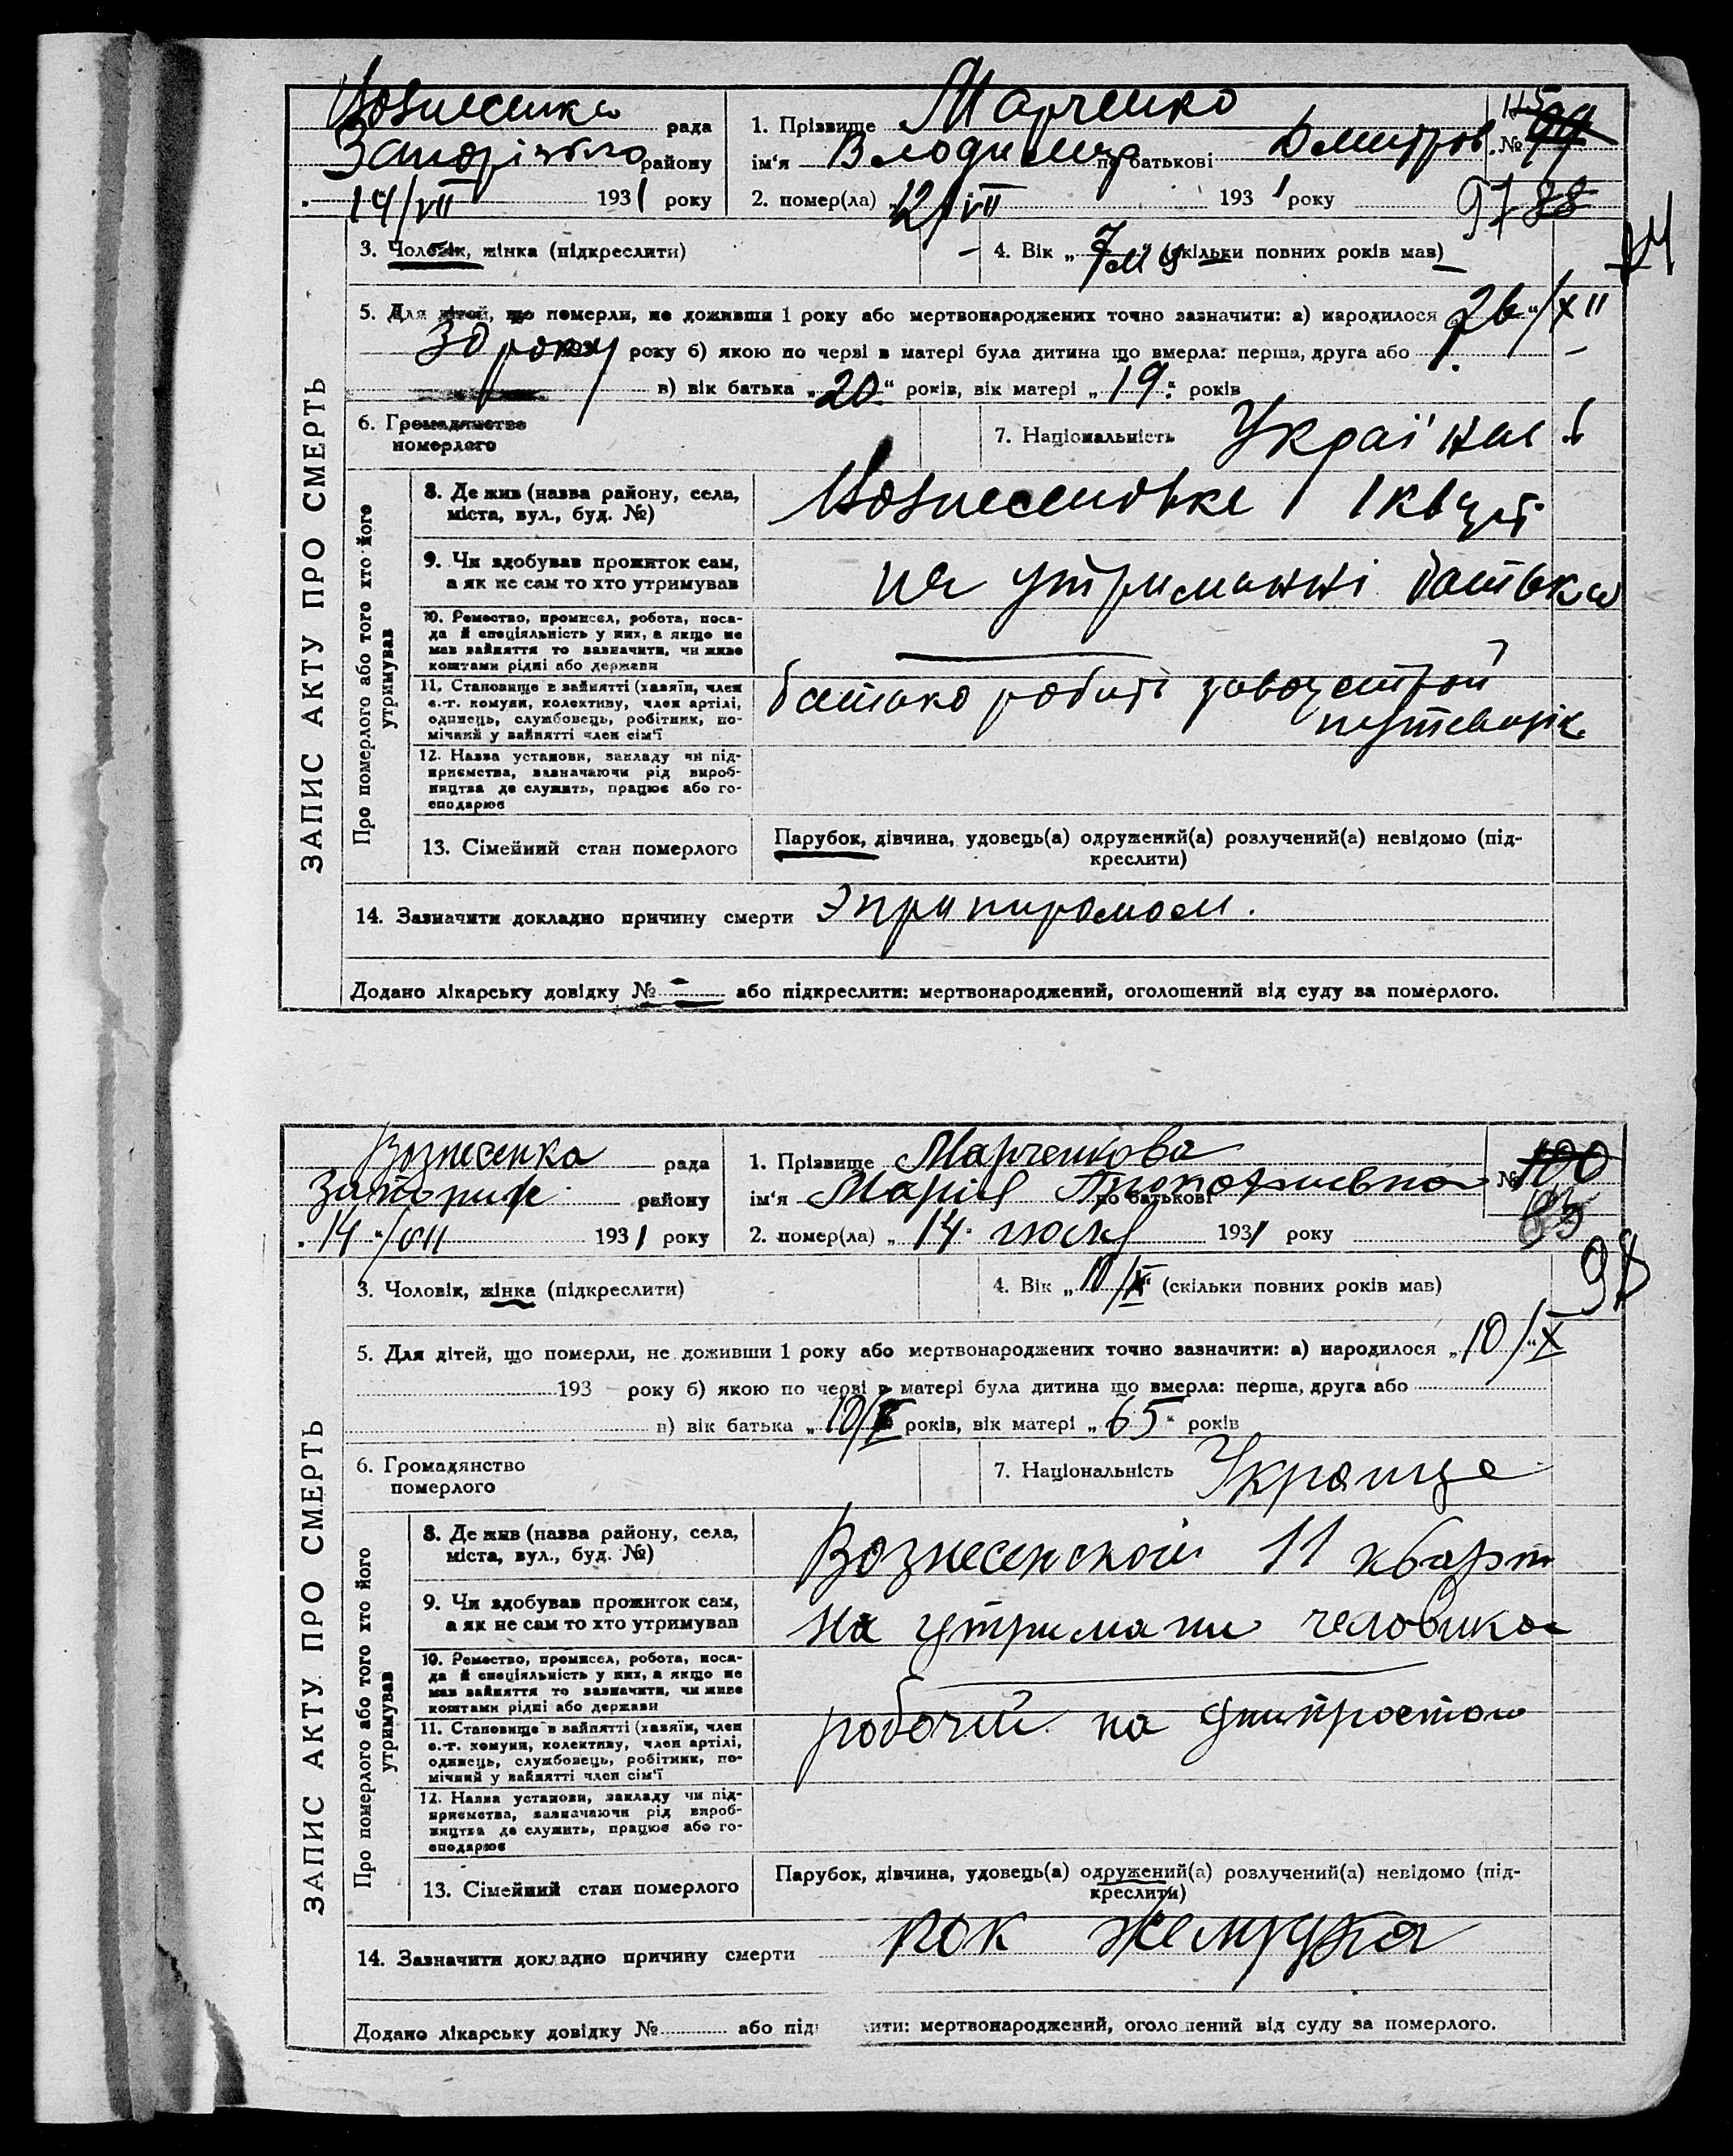 Вознесенка рада
Запорізького району
14/VII 1931 року
1. Прізвище Марченко
ім'я Володимир по батькові Дмитров
№ 99
2. помер(ла) „12/VII 1931 року
97 88
3. Чоловік, жінка (підкреслити)
4. Вік „7 м (скільки повних років мав)
5. Для дітей, що померли, не доживши 1 року або мертвонароджених точно зазначити: а) народилося 26/XII
30 року року б) якою по черві в матері була дитина що вмерла: перша, друга або
в) вік батька „20“ років, вік матері „19“ років
6. Громадянство
померлого
7. Національність
ЗАПИС АКТУ ПРО СМЕРТЬ
Про померлого або того хто його
утримував
8. Де жив (назва району, села,
міста, вул., буд. №)
9. Чи здобував прожиток сам,
а як не сам то хто утримував
на утриманні батька
10. Ремество, промисел, робота, поса-
да й спеціяльність у них, а якщо не
мав зайняття то зазначити, чи живе
коштами рідні або держави
11. Становище в зайнятті (хазяїн, член
с.-г. комуни, колективу, член артілі,
одинець, службовець, робітник, по-
мічний у зайнятті член сім'ї
батько робить
12. Назва установи, закладу чи під-
приємства, зазначаючи рід вироб-
ництва де служить, працює або го-
сподарює
13. Сімейний стан померлого
Парубок, дівчина, удовець(а) одружений(а) розлучений(а) невідомо (під-
креслити)
14. Зазначити докладно причину смерти
Додано лікарську довідку № – або підкреслити: мертвонароджений, оголошений від суду за померлого.
Вознесенка рада
району
„14“/VII 1931 року
1. Прізвище Марченкова
ім'я Марія по батькові
№ 100
2. помер(ла) „14 1931 року
98
3. Чоловік, жінка (підкреслити)
4. Вік „ (скільки повних років мав)
5. Для дітей, що померли, не доживши 1 року або мертвонароджених точно зазначити: а) народилося „10/X
193 року б) якою по черві в матері була дитина що вмерла: перша, друга або
в) вік батька „10/X років, вік матері „65“ років
6. Громадянство
померлого
7. Національність
ЗАПИС АКТУ ПРО СМЕРТЬ
Про померлого або того хто його
утримував
8. Де жив (назва району, села,
міста, вул., буд. №)
11 кварт
9. Чи здобував прожиток сам,
а як не сам то хто утримував
на утримани человика
10. Ремество, промисел, робота, поса-
да й спеціяльність у них, а якщо не
мав зайняття то зазначити, чи живе
коштами рідні або держави
11. Становище в зайнятті (хазяїн, член
с.-г. комуни, колективу, член артілі,
одинець, службовець, робітник, по-
мічний у зайнятті член сім'ї
робочий на
12. Назва установи, закладу чи під-
приємства, зазначаючи рід вироб-
ництва де служить, працює або го-
сподарює
13. Сімейний стан померлого
Парубок, дівчина, удовець(а) одружений(а) розлучений(а) невідомо (під-
креслити)
14. Зазначити докладно причину смерти рок желудка
Додано лікарську довідку № або під ити: мертвонароджений, оголошений від суду за померлого.